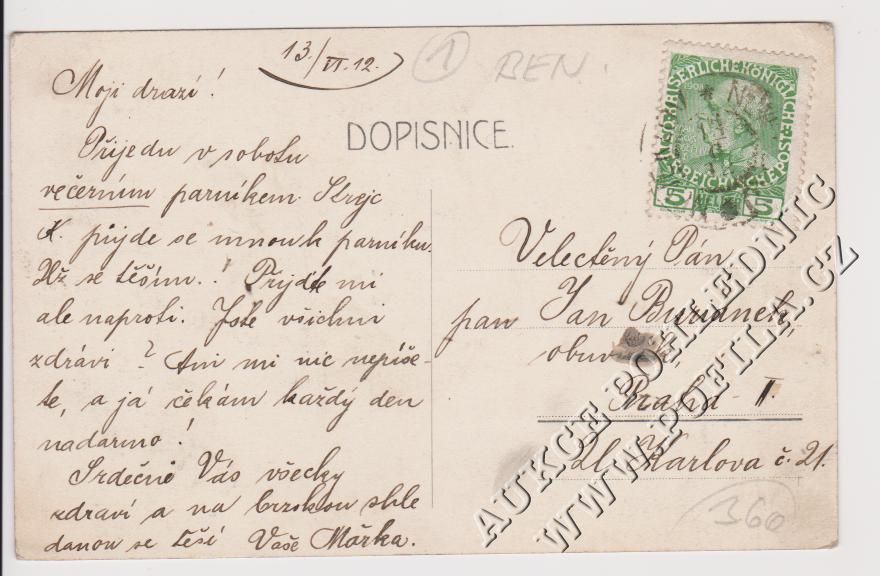 13/VI.12.
1
BEN.
Moji drazí!
Přijedu v sobotu
večerním parníkem. Strejc
K. přijde se mnou k parníku.
Už se těším.. Přijďte mi
ale naproti. Jste všichni
zdrávi? Ani mi nic nepíše-
te, a já čekám každý den
nadarmo!
Srdečně Vás všecky
zdraví a na brzkou shle
danou se těší Vaše Mářka.
DOPISNICE.
KAISERLICHE KÖNIGLICHE
5 5
Velectěný Pán
pan Jan
Praha - II.
Karlova č. 21.
360
AUKCE POHLEDNIC
WWW.POFILA.CZ